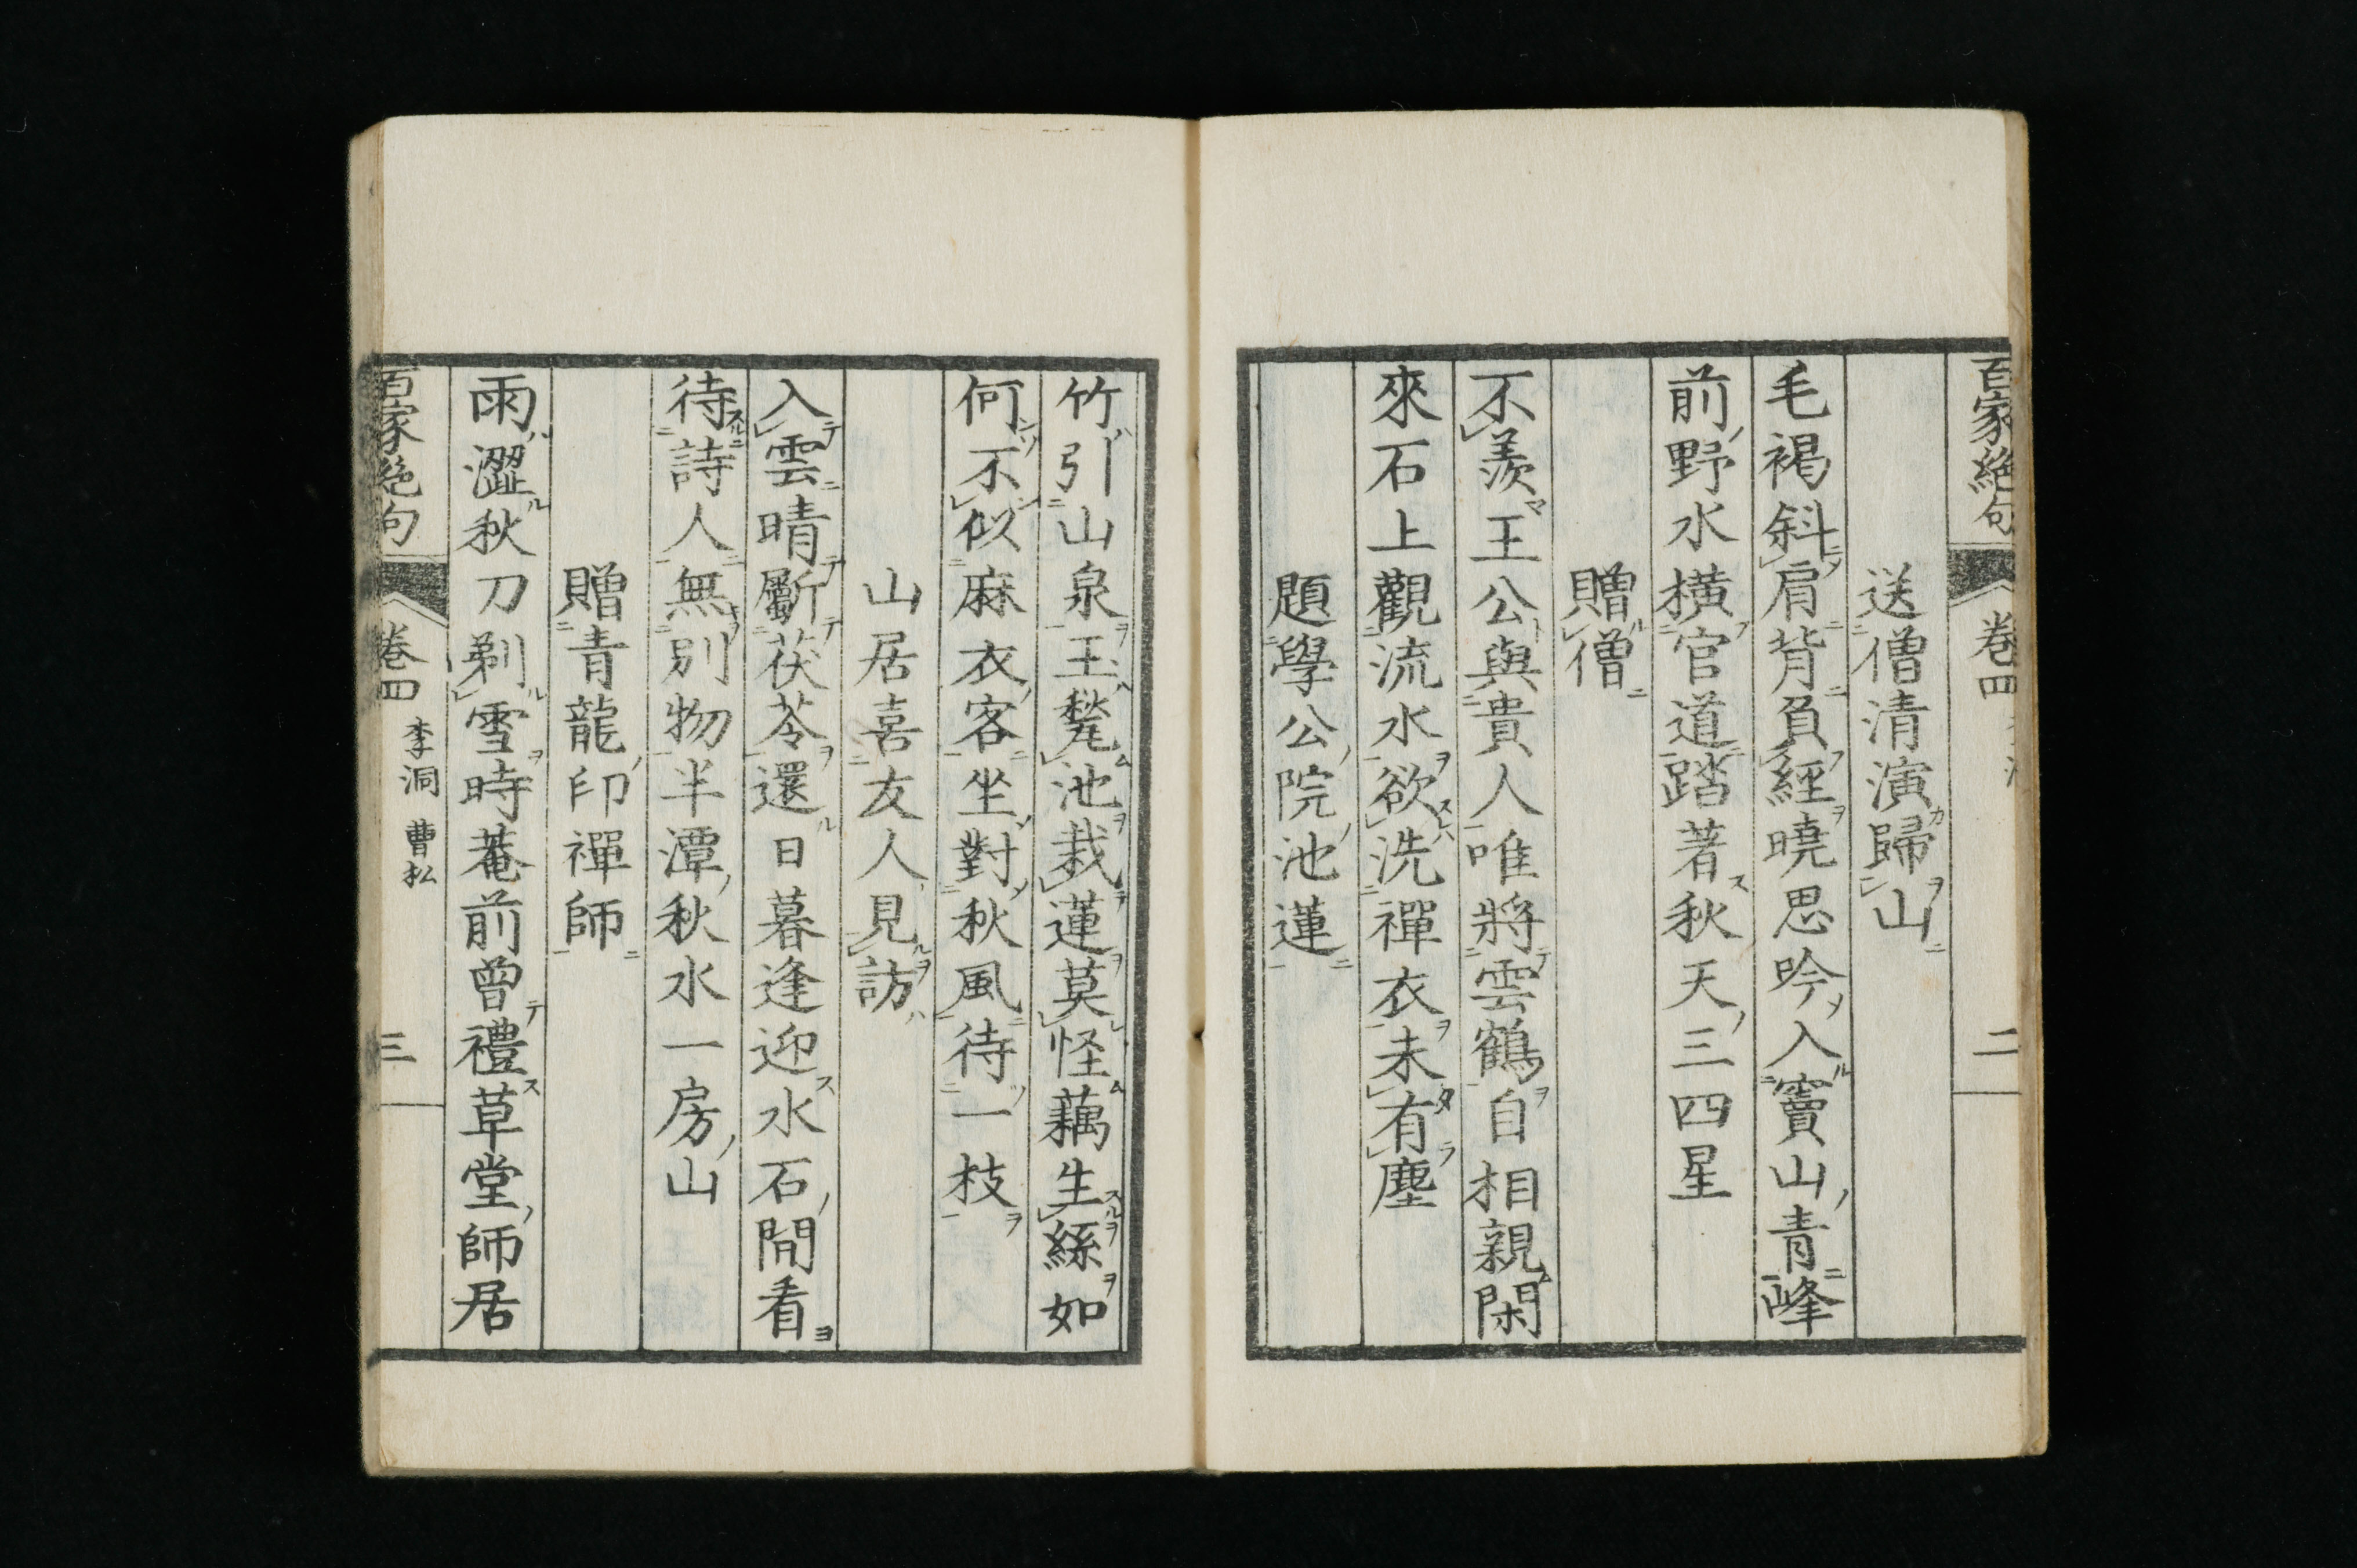 百家絶句 卷四 二
送僧清演歸山
毛褐斜肩背負經曉思吟入竇山青峰
前野水橫官道踏著秋天三四星
贈僧
不羨王公與貴人唯將雲鶴自相親閑
來石上觀流水欲洗禪衣未有塵
題學公院池蓮
竹引山泉玉甃池栽蓮莫怪藕生絲如
何不似麻衣客坐對秋風待一枝
山居喜友人見訪
入雲晴斸茯苓還日暮逢迎水石閒看
待詩人無別物半潭秋水一房山
贈青龍印禪師
雨澀秋刀剃雪時菴前曾禮草堂師居
百家絶句 卷四 李洞 曹松 三